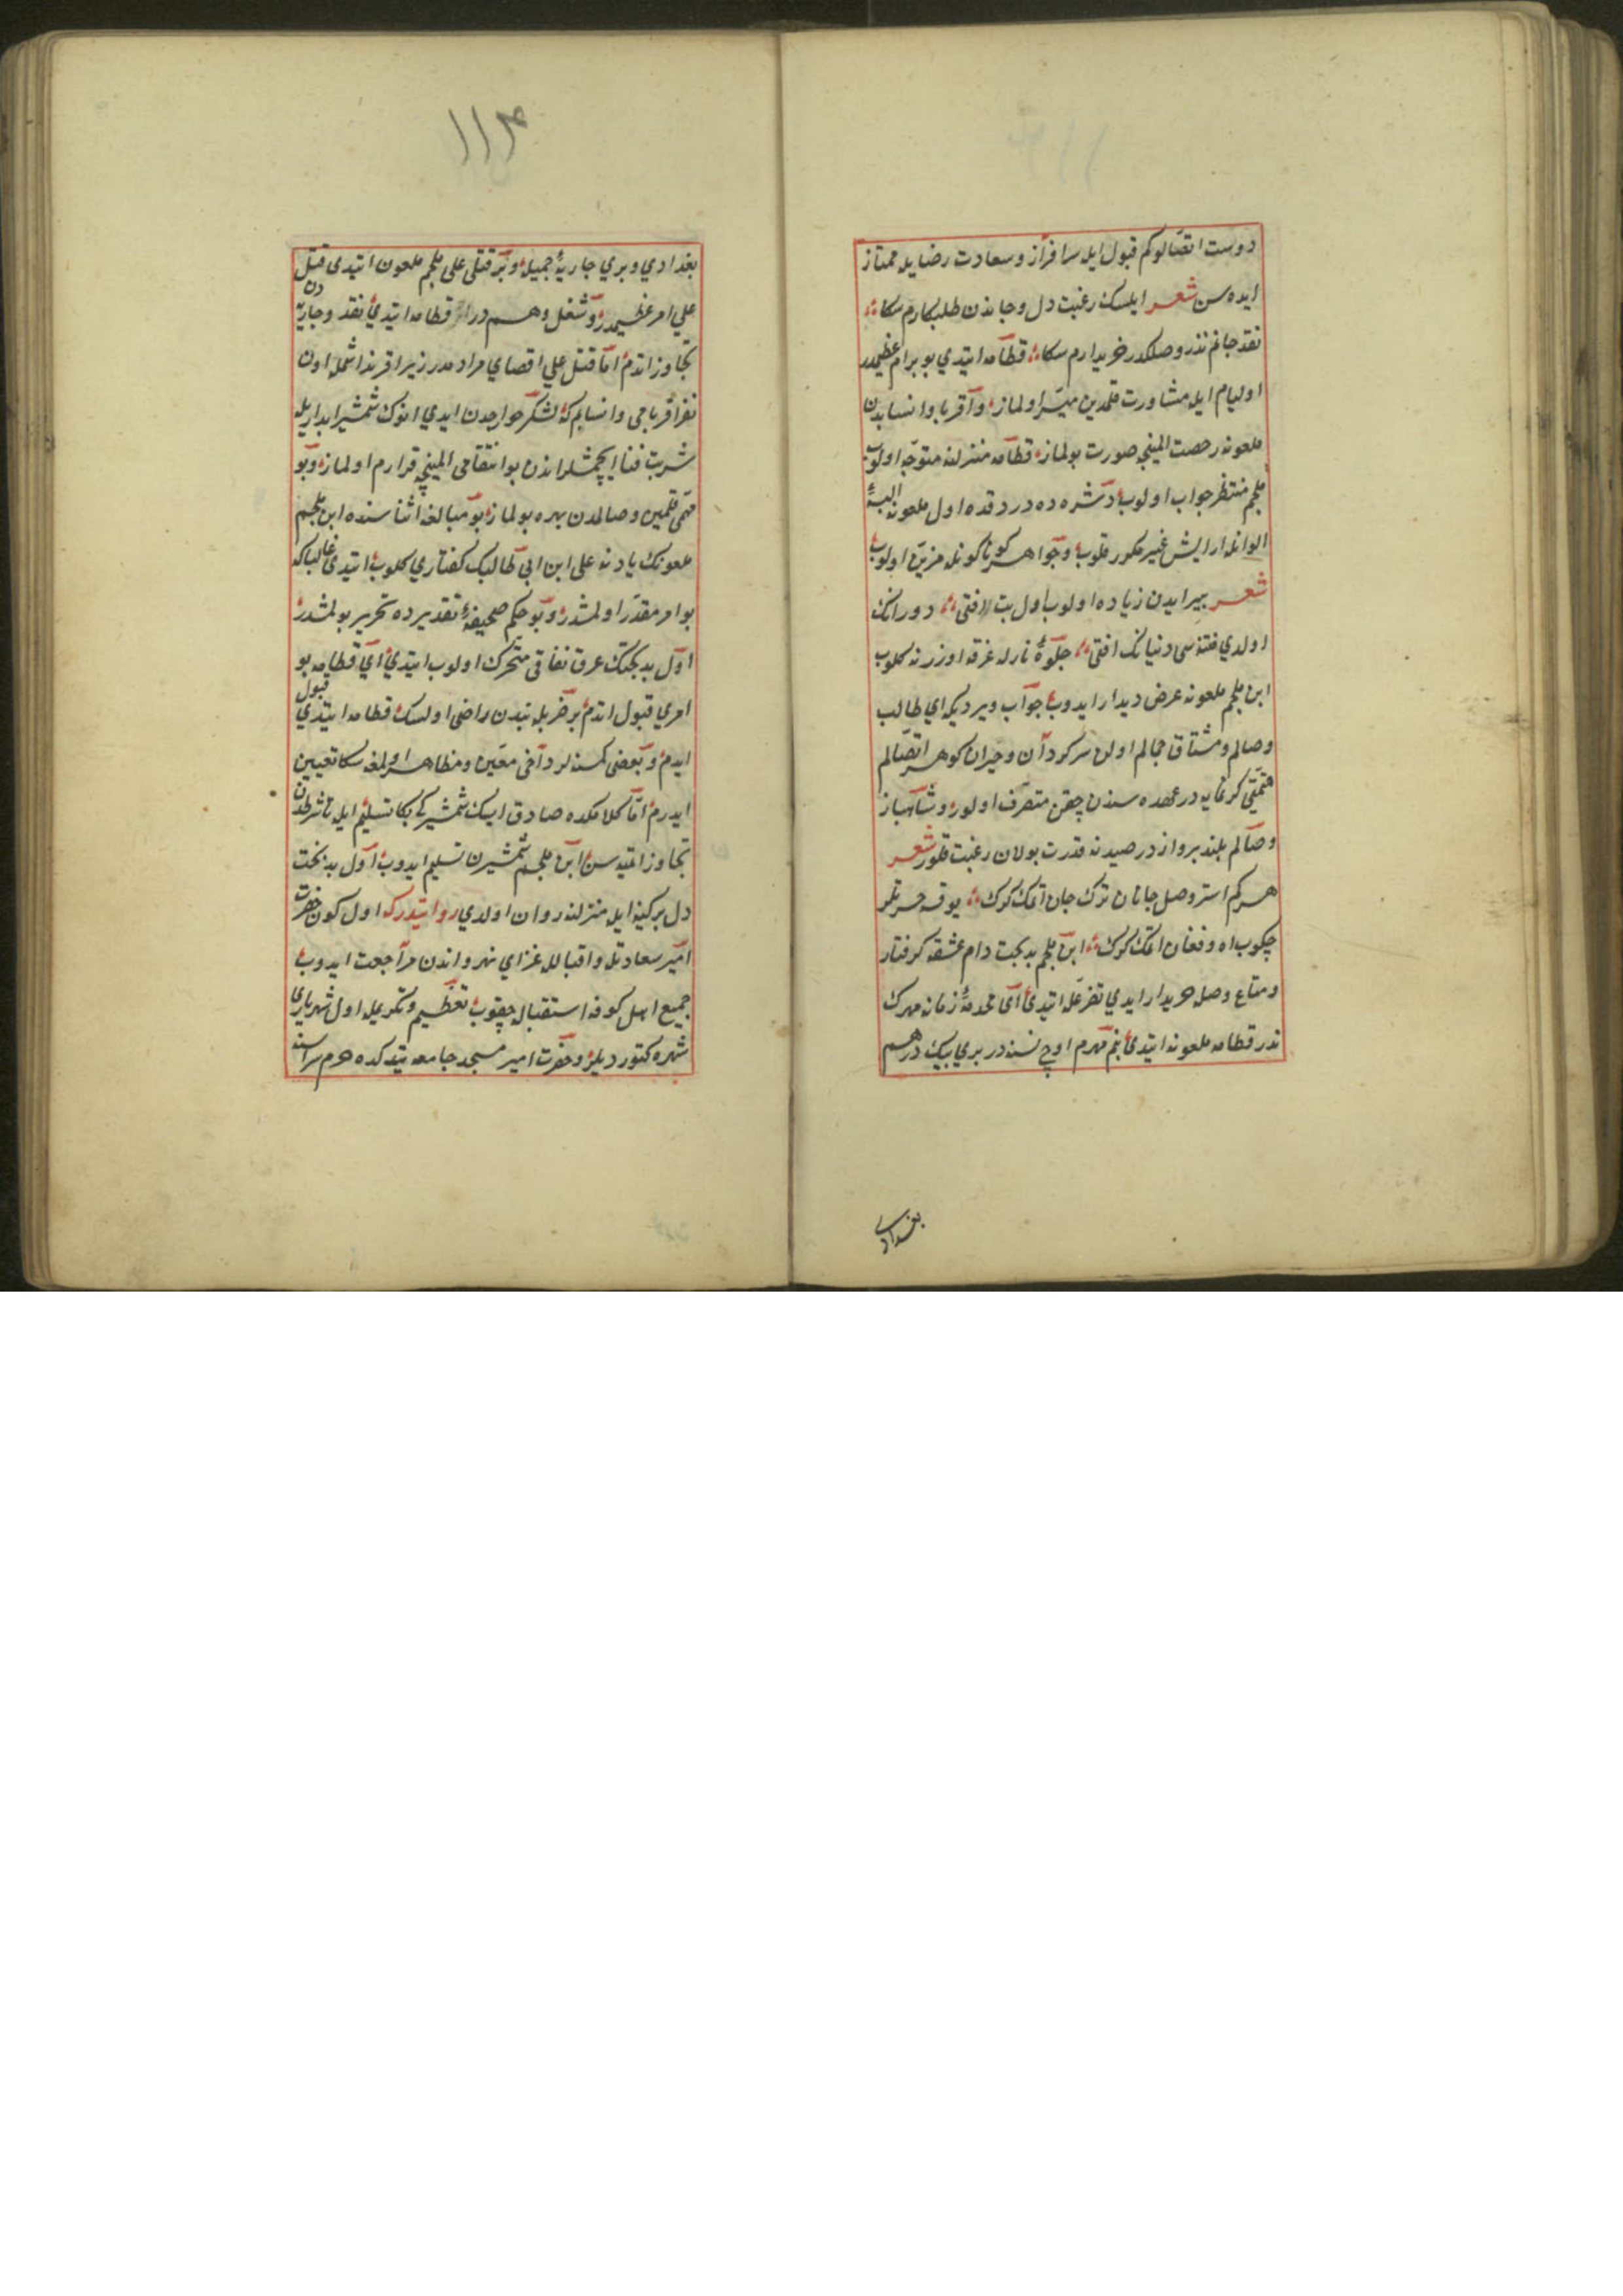 دوست اتصالوكم قبول ايله سرافراز و سعادت رضايله ممتاز
ايده سن شعر ايلسك رغبت دل و جاندن طلبكارم سكا
نقد جانم نذر وصلكدر خريدارم سكا قطامه ايتدي بو بر امر عظيمدر
اوليام ايله مشاورت قلمدين ميسر اولماز و اقربا و انسابدن
ملعونه رخصت المينجه صورت بولماز قطامه منزلنه متوجه اولوب
ملجم منتظر جواب اولوب دشره ده دردقده اول ملعونه البسهٔ
الوانله ارايش غير مكرر قلوب و جواهر كوناكونله مزين اولوب
شعر بيرايدن زياده اولوب اول بت افتى دورانك
اولدي فتنه سى دنيانك افتى جلوهٔ نازله غرفه اوزرنه كلوب
ابن ملجم ملعونه عرض ديدار ايدوب جواب ويرديكه اي طالب
وصالم و مشتاق جمالم اولن سركردان و حيران كوهر اتصالم
قيمتى كرانمايه در عهده سندن چقن متصرف اولور و شاهباز
وصالم بلند برواز در صيدنه قدرت بولان رغبت قلور شعر
هركم استر وصل جانان ترك جان اتمك كرك يوقسه حسرتلر
چكوب اه و فغان اتمك كرك ابن ملجم بدبخت دام عشقه كرفتار
و متاع وصله خريدار ايدي تضرعله ايتدى اى مخدرهٔ زمانه مهرك
ندر قطامه ملعونه ايتدى بنم مهرم اوچ نسنه در بري بيك درهم
بغدادي
بغدادي و بري جاريهٔ جميله و بر قتلى على ملجم ملعون ايتدى قتل
علي امر عظيمدر و شغل وهم در قطامه ايتدي نقد و جاريه دن
تجاوز اتدم اما قتل علي اقصاي مراد مدر زيرا قرنداشمله اون
نفر اقرباجى و انسابم كه لشكر خوارجدن ايدي انوك شمشير ابداريله
شربت فنا ايچمشلر اندن بو انتقامى المينجه قرارم اولماز و بو
مهمى قلمين وصالمدن بهره بولماز بو مبالغه اثنا سنده ابن ملجم
ملعونك يادنه على ابن ابى طالبك كفتاري كلوب ايتدى غالباكه
بو امر مقدر اولمشدر و بو حكم صحيفهٔ تقديرده تحرير بولمشدر
اول بدبختك عرق نفاقى متحرك اولوب ايتدي اى قطامه بو
امري قبول اتدم بر ضربله نبدن راضى اولسك قطامه ايتدي قبول
ايدم و بعضى كمسنه لر داخى معين و مظاهر اولمغه سكا تعيين
ايدرم اما كلامكده صادق ايسك شمشيركى بكا تسليم ايله تا شرطدن
تجاوز اتميه سن ابن ملجم شمشيرن تسليم ايدوب اول بدبخت
دل بركينه ايله منزلنه روان اولدي روايتدركه اول كون حضرت
امير سعادتله و اقبالله غزاي نهرواندن مراجعت ايدوب
جميع اهل كوفه استقباله چقوب تعظيم و تكريمله اول شهرياري
شهره كتورديلر و حضرت امير مسجد جامعه يتدكده حرم سراسنه
١١٣